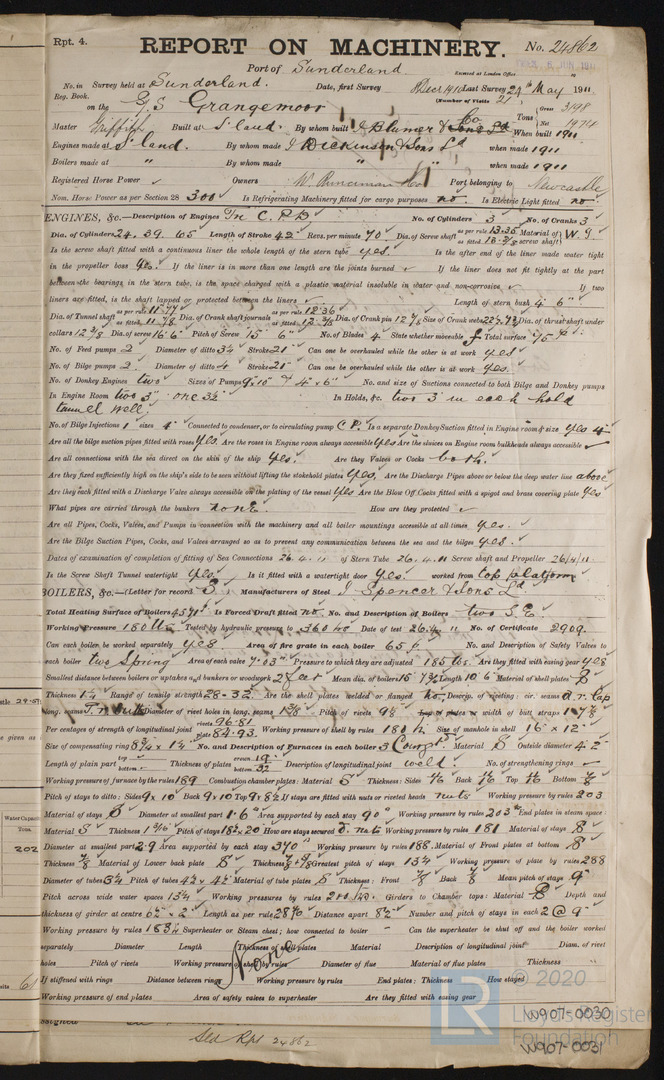 Rpt. 4.
REPORT ON MACHINERY. No. 24862
Port of Sunderland
Received at London Office TUES. 6 JUN 1911
No. in Survey held at Sunderland. Date, first Survey Last Survey 24th May 1911
Reg. Book. (Number of Visits 21)
on the Grangemoor Tons Gross 3198 Net 1974
Master Griffith Built at S'land. By whom built J Blumer & Co When built 1911
Engines made at S'land. By whom made J Dickinson & Sons Ld when made 1911
Boilers made at " By whom made " when made 1911
Registered Horse Power Owners W Runciman & Co Port belonging to Newcastle
Nom. Horse Power as per Section 28 300 Is Refrigerating Machinery fitted for cargo purposes no. Is Electric Light fitted no
ENGINES, &c.—Description of Engines No. of Cylinders 3 No. of Cranks 3
Dia. of Cylinders 24. 39. 65 Length of Stroke 42 Revs. per minute 70 Dia. of Screw shaft as per rule 13.35 as fitted Material of screw shaft
Is the screw shaft fitted with a continuous liner the whole length of the stern tube yes. Is the after end of the liner made water tight
in the propeller boss yes. If the liner is in more than one length are the joints burned If the liner does not fit tightly at the part
between the bearings in the stern tube, is the space charged with a plastic material insoluble in water and non-corrosive If two
liners are fitted, is the shaft lapped or protected between the liners Length of stern bush 4' 6"
Dia. of Tunnel shaft as per rule 11.77 as fitted 11.78 Dia. of Crank shaft journals as per rule 12.36 as fitted 12 3/8 Dia. of Crank pin 12 7/8 Size of Crank webs Dia. of thrust shaft under
collars 12 3/8 Dia. of screw 16' 6" Pitch of Screw 15' 6" No. of Blades 4 State whether moveable Total surface 75
No. of Feed pumps 2 Diameter of ditto 3 1/4 Stroke 21 Can one be overhauled while the other is at work yes
No. of Bilge pumps 2 Diameter of ditto 4 Stroke 21 Can one be overhauled while the other is at work yes.
No. of Donkey Engines two Sizes of Pumps No. and size of Suctions connected to both Bilge and Donkey pumps
In Engine Room two 3" one 3 1/2 In Holds, &c. two 3" in each hold
tunnel well.
No. of Bilge Injections 1 sizes 4" Connected to condenser, or to circulating pump C.P. Is a separate Donkey Suction fitted in Engine room & size yes 4"
Are all the bilge suction pipes fitted with roses yes. Are the roses in Engine room always accessible yes Are the sluices on Engine room bulkheads always accessible
Are all connections with the sea direct on the skin of the ship yes. Are they Valves or Cocks both.
Are they fixed sufficiently high on the ship's side to be seen without lifting the stokehold plates yes. Are the Discharge Pipes above or below the deep water line above
Are they each fitted with a Discharge Valve always accessible on the plating of the vessel yes Are the Blow Off Cocks fitted with a spigot and brass covering plate yes
What pipes are carried through the bunkers none. How are they protected
Are all Pipes, Cocks, Valves, and Pumps in connection with the machinery and all boiler mountings accessible at all times yes.
Are the Bilge Suction Pipes, Cocks, and Valves arranged so as to prevent any communication between the sea and the bilges yes.
Dates of examination of completion of fitting of Sea Connections 26.4.11 of Stern Tube 26.4.11 Screw shaft and Propeller 26/4/11
Is the Screw Shaft Tunnel watertight yes. Is it fitted with a watertight door yes. worked from top platform
BOILERS, &c.—(Letter for record S) Manufacturers of Steel J Spencer & Sons Ld
Total Heating Surface of Boilers 4571 Is Forced Draft fitted no No. and Description of Boilers two S.E.
Working Pressure 180 lbs Tested by hydraulic pressure to 360 Date of test 26.4.11 No. of Certificate 2909.
Can each boiler be worked separately yes Area of fire grate in each boiler 65 No. and Description of Safety Valves to
each boiler two Spring Area of each valve 7.03 Pressure to which they are adjusted 185 lbs. Are they fitted with easing gear yes
Smallest distance between boilers or uptakes and bunkers or woodwork 2 feet Mean dia. of boilers Length 10' 6 Material of shell plates S
Thickness 1 1/4 Range of tensile strength 28-32 Are the shell plates welded or flanged no. Descrip. of riveting: cir. seams d.r. lap
long. seams Diameter of rivet holes in long. seams 1 3/8 Pitch of rivets 9 1/2 Lap of plates or width of butt straps
Per centages of strength of longitudinal joint rivets 96.81 plate 84.93 Working pressure of shell by rules 180 Size of manhole in shell 16" x 12"
Size of compensating ring No. and Description of Furnaces in each boiler 3 Material S Outside diameter
Length of plain part top bottom Thickness of plates crown bottom Description of longitudinal joint weld No. of strengthening rings
Working pressure of furnace by the rules 189 Combustion chamber plates: Material S Thickness: Sides Back Top Bottom
Pitch of stays to ditto: Sides 9 x 10 Back 9 x 10 Top If stays are fitted with nuts or riveted heads nuts Working pressure by rules 203
Material of stays S Diameter at smallest part Area supported by each stay 90 Working pressure by rules 203 End plates in steam space:
Material S Thickness Pitch of stays How are stays secured d. nuts Working pressure by rules 181 Material of stays S
Diameter at smallest part 2.9 Area supported by each stay 370 Working pressure by rules 188. Material of Front plates at bottom S
Thickness Material of Lower back plate S Thickness Greatest pitch of stays 13 1/4 Working pressure of plate by rules 288
Diameter of tubes 3 1/4 Pitch of tubes Material of tube plates S Thickness: Front Back Mean pitch of stays 9"
Pitch across wide water spaces 13 1/4 Working pressures by rules Girders to Chamber tops: Material S Depth and
thickness of girder at centre Length as per rule Distance apart 8 1/2 Number and pitch of stays in each 2 @ 9"
Working pressure by rules 183 Superheater or Steam chest; how connected to boiler Can the superheater be shut off and the boiler worked
separately Diameter Length Thickness of shell plates Material Description of longitudinal joint Diam. of rivet
holes Pitch of rivets Working pressure of shell by rules Diameter of flue Material of flue plates Thickness
None
If stiffened with rings Distance between rings Working pressure by rules End plates: Thickness How stayed
Working pressure of end plates Area of safety valves to superheater Are they fitted with easing gear
Sld Rpt 24862
© 2020
LR Lloyd's Register
Foundation
W907-0030
W907-0031
Water Capacity
Tons.
202